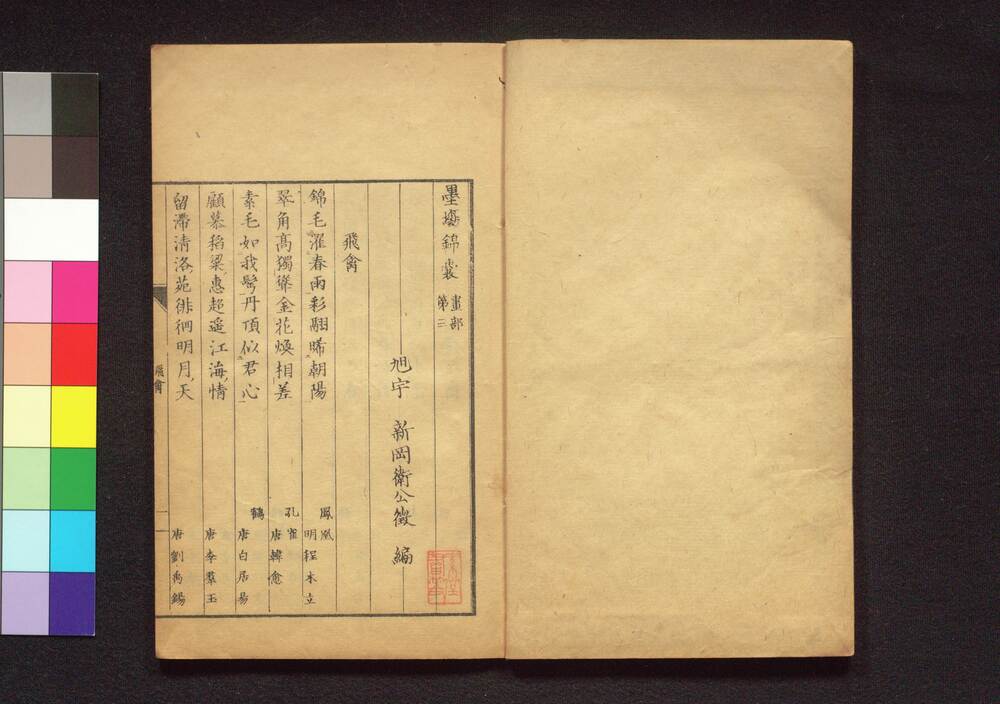 墨場錦囊 畫部第三
旭宇 新岡衛公徵 編
飛禽
錦毛濯春雨彩翮晞朝陽 鳳凰 明程本立
翠角高獨聳金花煥相差 孔雀 唐韓愈
素毛如我鬢丹頂似君心 鶴 唐白居易
顧慕稻粱惠超遥江海情 唐李羣玉
留滯清洛苑徘徊明月天 唐劉禹錫
飛禽
一